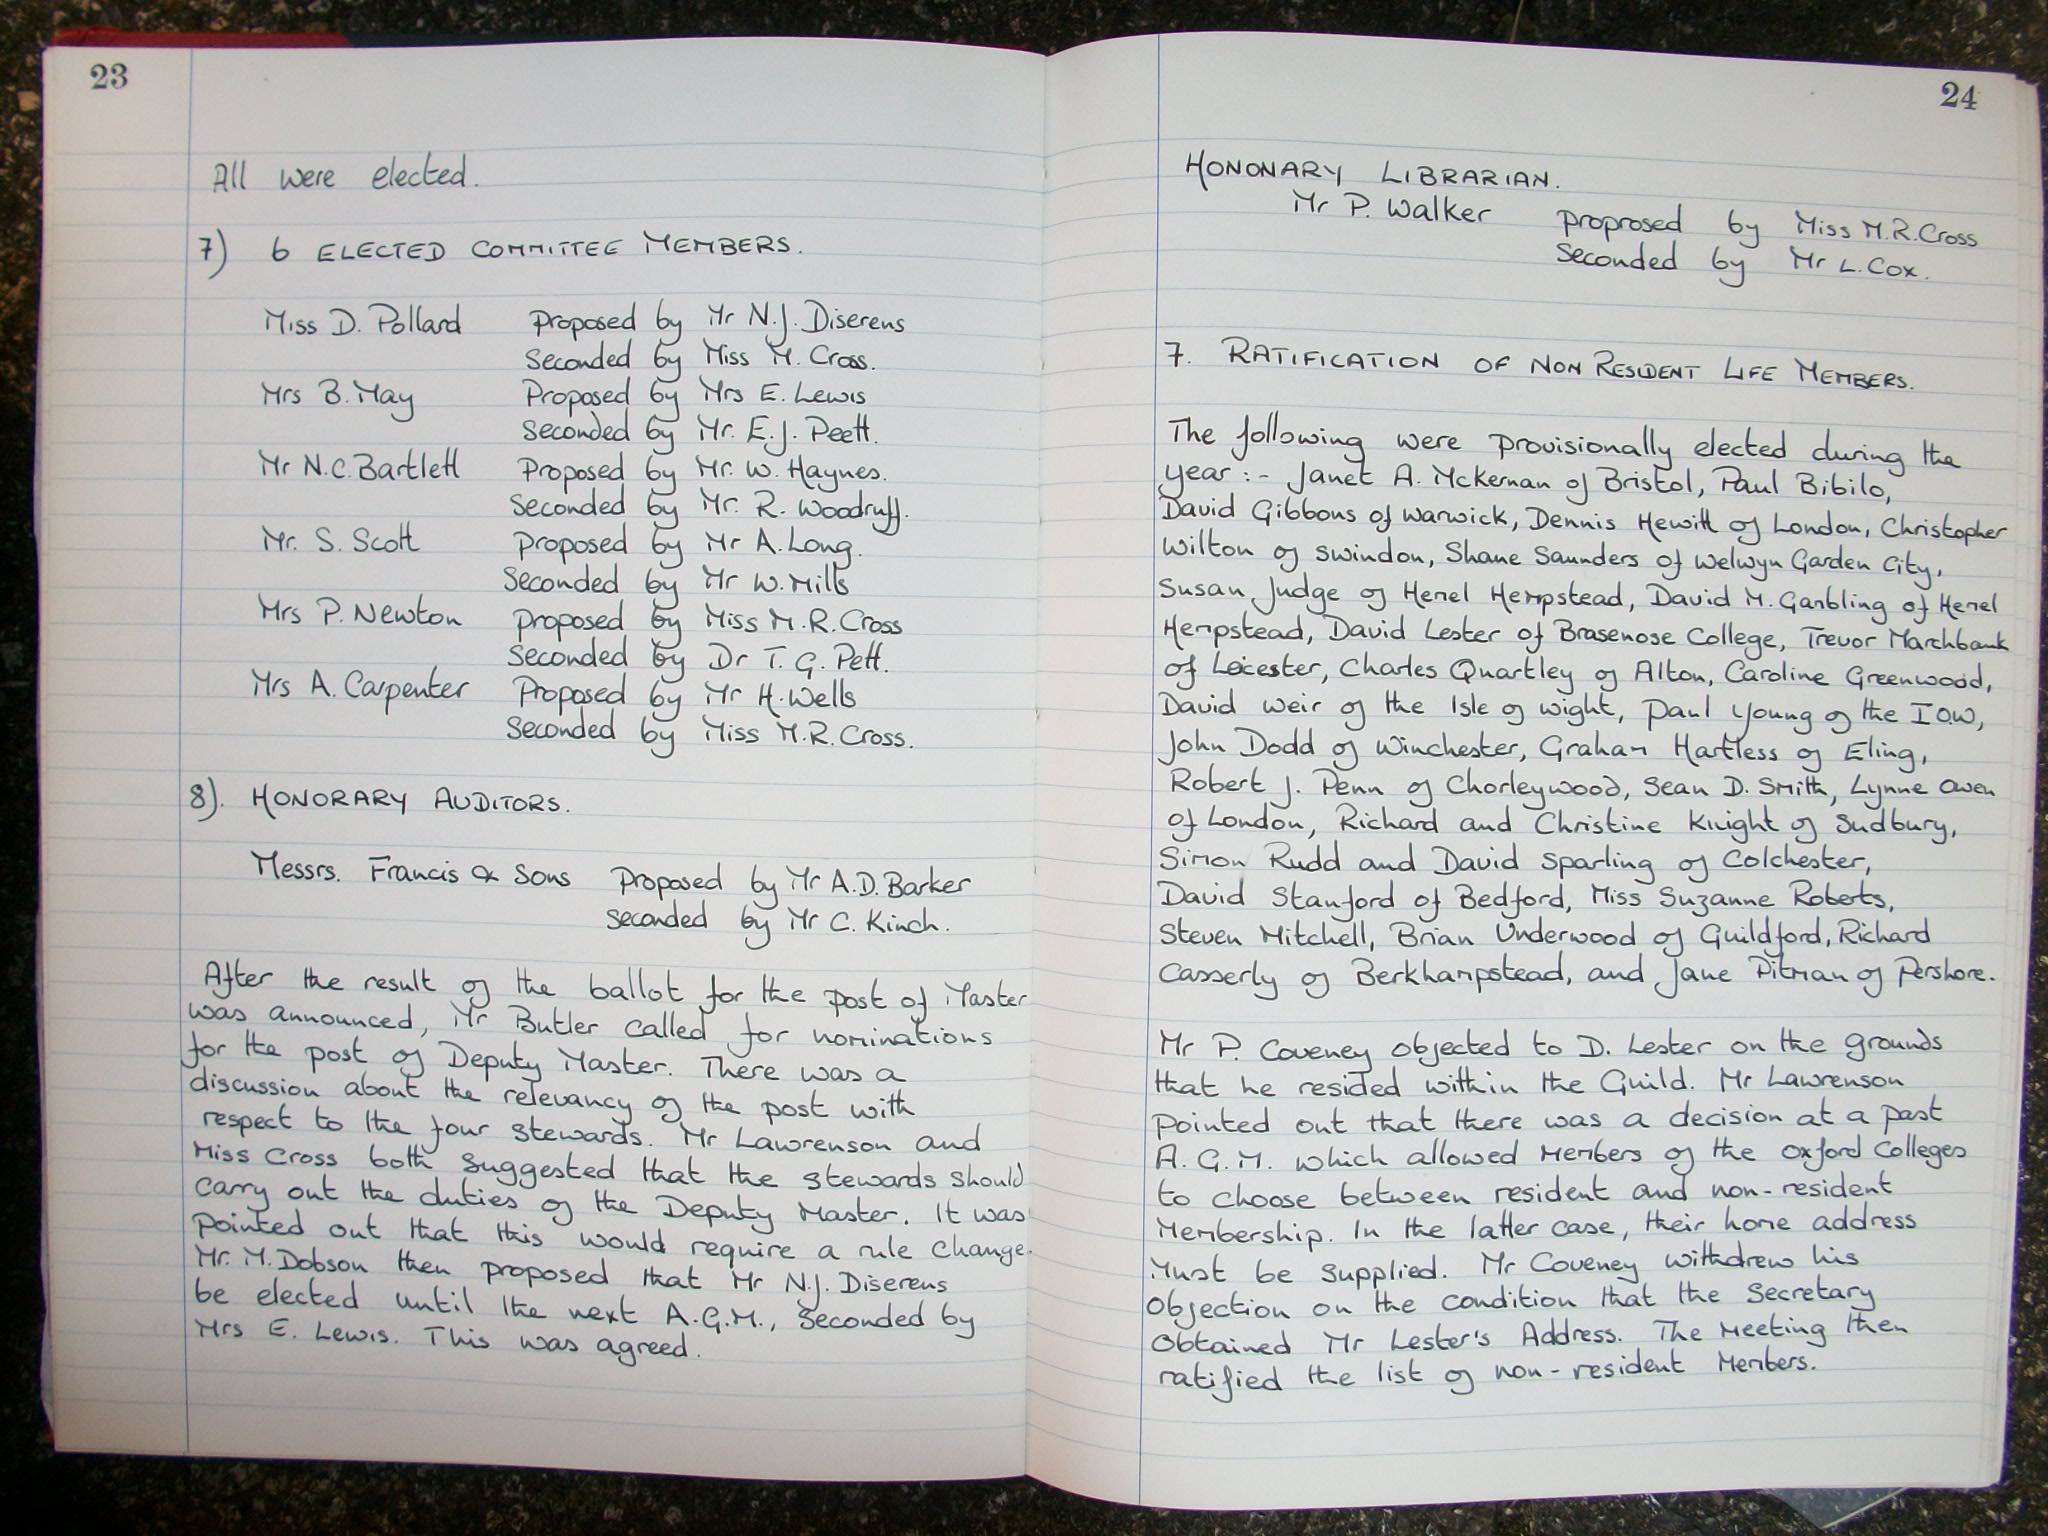 23
All were elected.
7) 6 ELECTED COMMITTEE MEMBERS.
Miss D. Pollard Proposed by Mr N.J. Diserens
Seconded by Miss M. Cross.
Mrs B. May Proposed by Mrs E. Lewis
Seconded by Mr. E.J. Peett.
Mr N.C. Bartlett Proposed by Mr. W. Haynes.
Seconded by Mr. R. Woodruff.
Mr. S. Scott Proposed by Mr A. Long.
Seconded by Mr W. Mills
Mrs P. Newton Proposed by Miss M.R. Cross
Seconded by Dr T.G. Pett.
Mrs A. Carpenter Proposed by Mr H. Wells
Seconded by Miss M.R. Cross.
8). HONORARY AUDITORS.
Messrs. Francis & Sons Proposed by Mr A.D. Barker
Seconded by Mr C. Kinch.
After the result of the ballot for the post of Master
was announced, Mr Butler called for nominations
for the post of Deputy Master. There was a
discussion about the relevancy of the post with
respect to the four stewards. Mr Lawrenson and
Miss Cross both suggested that the stewards should
carry out the duties of the Deputy Master. It was
pointed out that this would require a rule change.
Mr. M. Dobson then proposed that Mr N.J. Diserens
be elected until the next A.G.M., seconded by
Mrs E. Lewis. This was agreed.
24
HONONARY LIBRARIAN.
Mr P. Walker proprosed by Miss M.R. Cross
Seconded by Mr L. Cox.
7. RATIFICATION OF NON RESIDENT LIFE MEMBERS.
The following were provisionally elected during the
year :- Janet A. McKernan of Bristol, Paul Bibilo,
David Gibbons of Warwick, Dennis Hewitt of London, Christopher
Wilton of Swindon, Shane Saunders of Welwyn Garden City,
Susan Judge of Hemel Hempstead, David M. Garbling of Hemel
Hempstead, David Lester of Brasenose College, Trevor Marchbank
of Leicester, Charles Quartley of Alton, Caroline Greenwood,
David Weir of the Isle of Wight, Paul Young of the I.O.W,
John Dodd of Winchester, Graham Hartless of Eling,
Robert J. Penn of Chorleywood, Sean D. Smith, Lynne Owen
of London, Richard and Christine Knight of Sudbury,
Simon Rudd and David Sparling of Colchester,
David Stanford of Bedford, Miss Suzanne Roberts,
Steven Mitchell, Brian Underwood of Guildford, Richard
Casserly of Berkhampstead, and Jane Pitman of Pershore.
Mr P. Coveney objected to D. Lester on the grounds
that he resided within the Guild. Mr Lawrenson
pointed out that there was a decision at a past
A.G.M. which allowed members of the Oxford Colleges
to choose between resident and non-resident
Membership. In the latter case, their home address
must be supplied. Mr Coveney withdrew his
Objection on the condition that the Secretary
obtained Mr Lester's Address. The meeting then
ratified the list of non-resident Members.